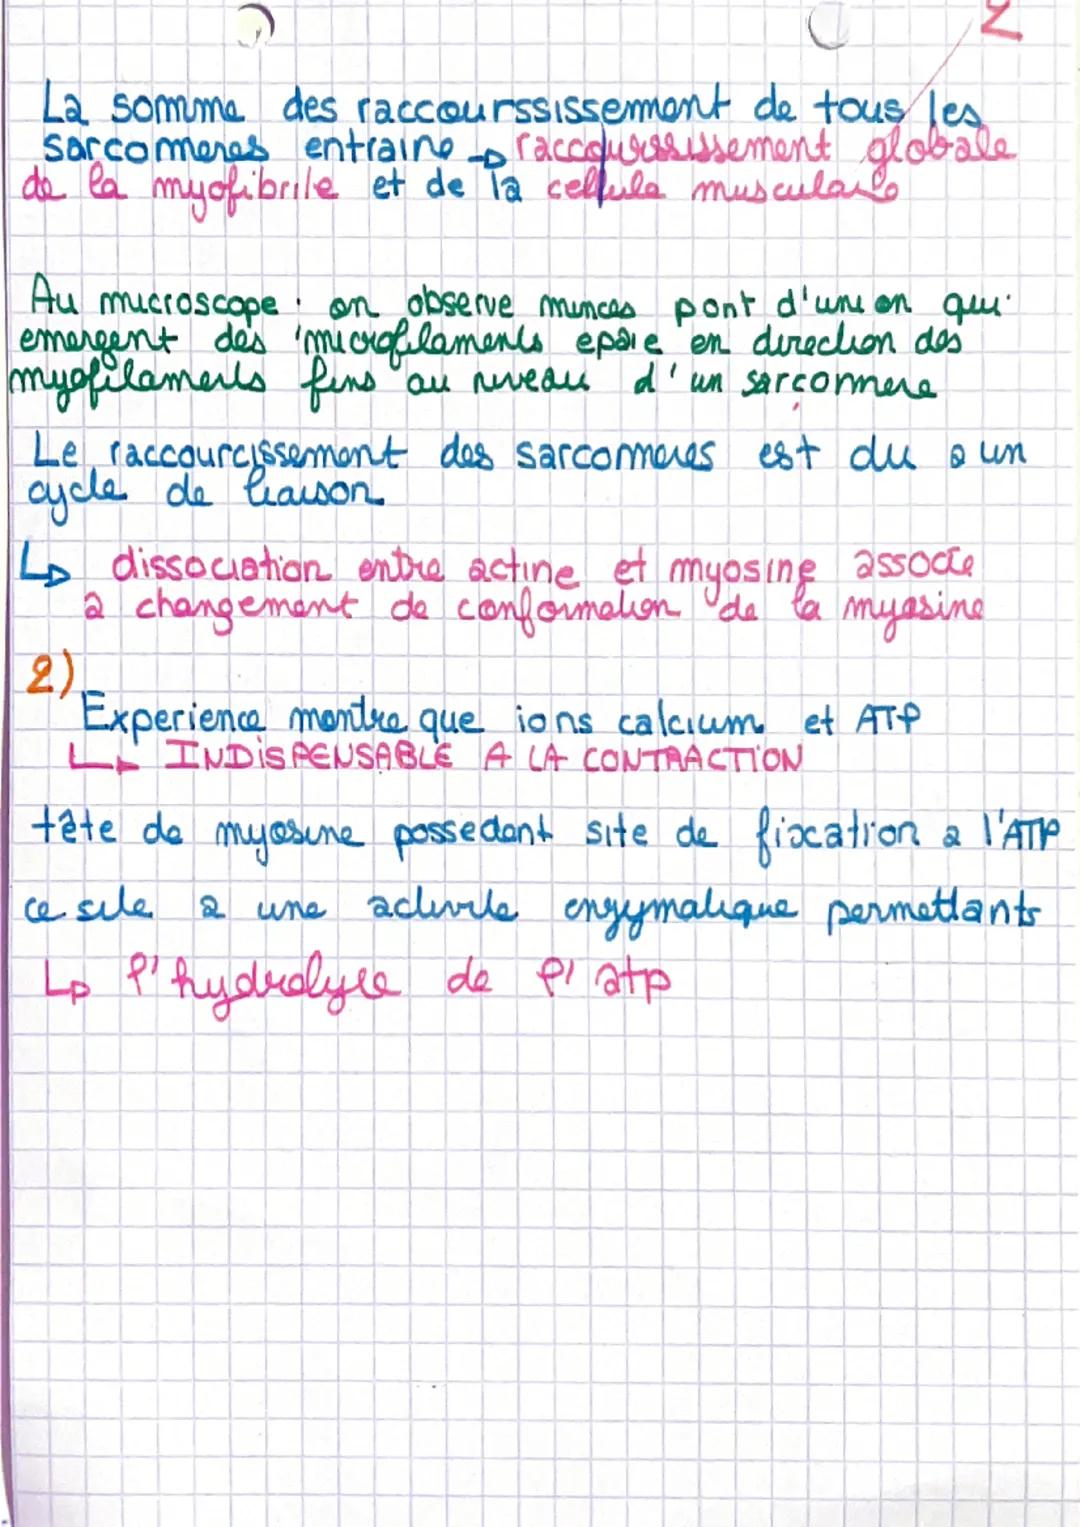 La somme des raccourssissement de tous les
sarcomeres entraine → raccourssissement globale
de la myofibrile et de la cellule musculaire
Au microscope : on observe minces pont d'union qui
emergent des microfilaments epaie en direction des
myofilaments fins au niveau d'un sarcomere
Le raccourcissement des sarcomeres est du a un
cycle de liaison
↳ dissociation entre actine et myosine associe
a changement de conformation de la myosine
2)
Experience montre que ions calcium et ATP
↳ INDISPENSABLE A LA CONTRACTION
tête de myosine possedent site de fixation a l'ATP
ce site a une activite enzymatique permettants
↳ l'hydrolyse de l'atp